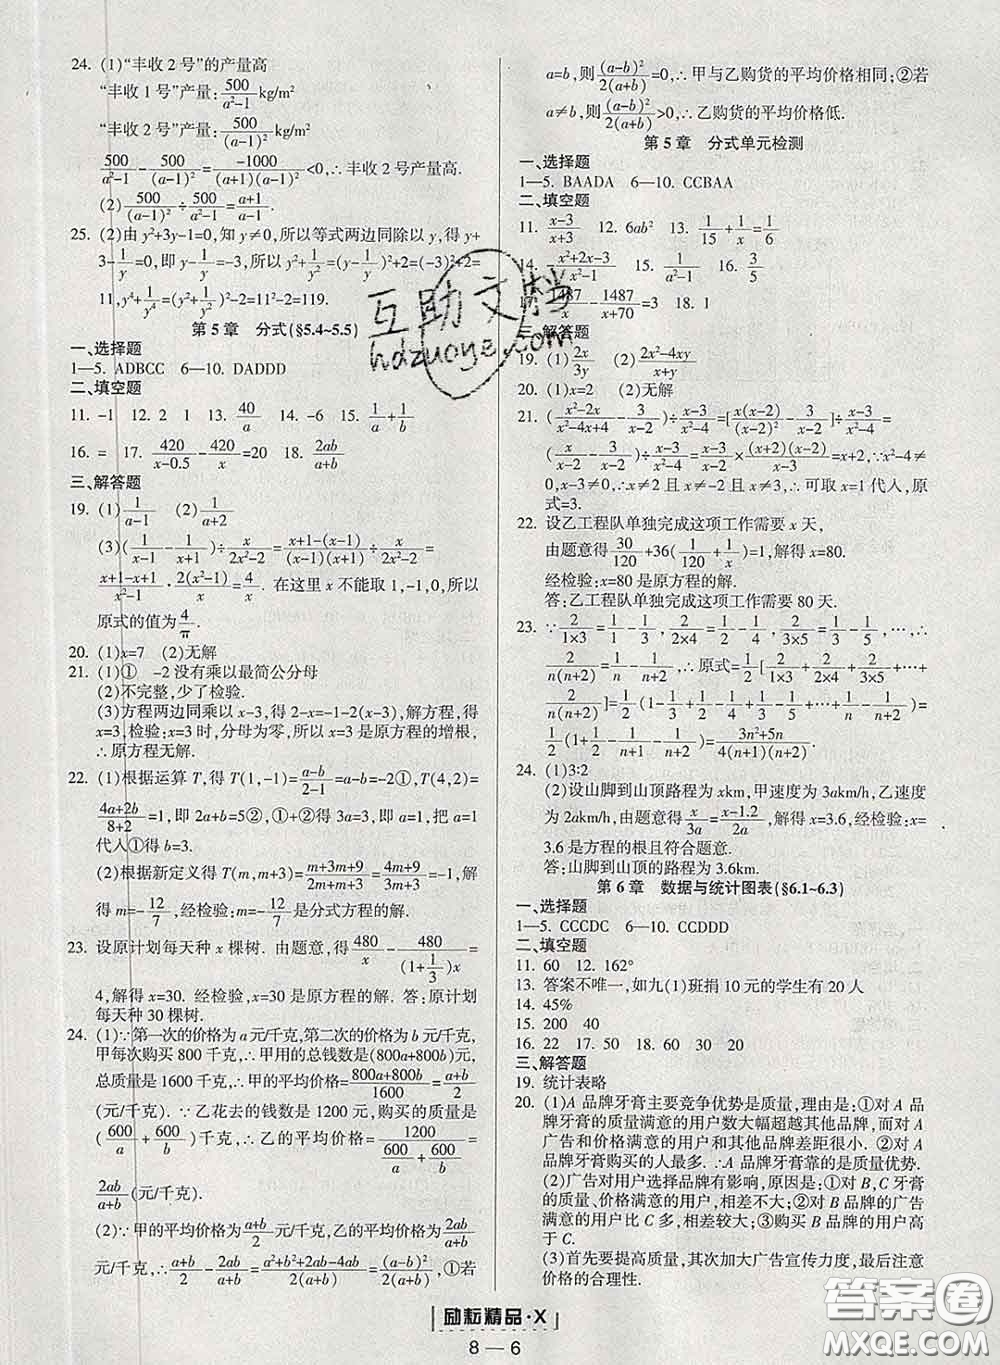 24. (1)“丰收2号”的产量高
“丰收1号”产量:500/(a²-1)kg/m²
“丰收2号”产量:500/(a-1)²kg/m²
500/(a²-1)-500/(a-1)²=-1000/((a+1)(a-1)²)<0,∴丰收2号产量高.
(2)500/(a-1)²÷500/(a²-1)=(a+1)/(a-1).
25. (2)由y²+3y-1=0,知y≠0,所以等式两边同除以y,得y+
3-1/y=0,即y-1/y=-3,所以y²+1/y²=(y-1/y)²+2=(-3)²+2=
11,y⁴+1/y⁴=(y²+1/y²)²-2=11²-2=119.
第5章 分式(§5.4~5.5)
一、选择题
1—5. ADBCC 6—10. DADDD
二、填空题
11. -1 12. 2 1 13. 40/a 14. -6 15. 1/a+1/b
16. = 17. 420/(x-0.5)-420/x=20 18. 2ab/(a+b)
三、解答题
19. (1)1/(a-1) (2)1/(a+2)
(3)(1/(x-1)-1/(x+1))÷x/(2x²-2)=(x+1-(x-1))/((x-1)(x+1))÷x/(2x²-2)=
(x+1-x+1)/(x²-1)·2(x²-1)/x=4/x. 在这里x不能取1,-1,0,所以
原式的值为4/π.
20. (1)x=7 (2)无解
21. (1)① -2没有乘以最简公分母
(2)不完整,少了检验.
(3)方程两边同乘以x-3,得2-x=-1-2(x-3),解方程,得
x=3,检验:x=3时,分母为零,所以x=3是原方程的增根,
∴原方程无解.
22. (1)根据运算T,得T(1,-1)=(a-b)/(2-1)=a-b=-2①,T(4,2)=
(4a+2b)/(8+2)=1,即2a+b=5②,①+②得3a=3,即a=1,把a=1
代人①得b=3.
(2)根据新定义得T(m,m+3)=(m+3m+9)/(2m+m+3)=(4m+9)/(3m+3)=-1,解
得m=-12/7,经检验:m=-12/7是分式方程的解.
23. 设原计划每天种x棵树. 由题意,得480/x-480/((1+1/3)x)=
4,解得x=30. 经检验,x=30是原方程的解. 答:原计划
每天种30棵树.
24. (1)∵第一次的价格为a元/千克,第二次的价格为b元/千克,
甲每次购买800千克,∴甲用的总钱数是(800a+800b)元,
总质量是1600千克,∴甲的平均价格=(800a+800b)/1600=(a+b)/2
(元/千克).∵乙花去的钱数是1200元,购买的质量是
(600/a+600/b)千克,∴乙的平均价格=1200/(600/a+600/b)=
2ab/(a+b)(元/千克).
(2)∵甲的平均价格为(a+b)/2元/千克,乙的平均价格为2ab/(a+b)
元/千克,∴(a+b)/2-2ab/(a+b)=(a²+b²+2ab-4ab)/(2(a+b))=(a-b)²/(2(a+b)),①若
a=b,则(a-b)²/(2(a+b))=0,∴甲与乙购货的平均价格相同;②若
a≠b,则(a-b)²/(2(a+b))>0,∴乙购货的平均价格低.
第5章 分式单元检测
一、选择题
1—5. BAADA 6—10. CCBAA
二、填空题
11. (x-3)/(x+3) 12. 6ab² 13. 1/15+1/x=1/6
14. -(x²+2x-3)/(x²-1) 15. 1/(a-1) 16. 3/5
17. 1487/x-1487/(x+70)=3 18. 1
三、解答题
19. (1)2x/3y (2)(2x²-4xy)/(x+y)
20. (1)x=2 (2)无解
21. ((x²-2x)/(x²-4x+4)-3/(x-2))÷(x-3)/(x²-4)=[x(x-2)/(x-2)²-3/(x-2)]÷(x-3)/(x²-4)=
(x/(x-2)-3/(x-2))÷(x-3)/(x²-4)=(x-3)/(x-2)×(x+2)(x-2)/(x-3)=x+2,∵x²-4≠
0,x-3≠0,∴x≠2且x≠-2且x≠3,∴可取x=1代人,原
式=3.
22. 设乙工程队单独完成这项工作需要x天,
由题意得30/120+36(1/120+1/x)=1,解得x=80.
经检验:x=80是原方程的解.
答:乙工程队单独完成这项工作需要80天.
23. ∵2/(1×3)=1/1-1/3,2/(2×4)=1/2-1/4,2/(3×5)=1/3-1/5,…,∴
2/(n(n+2))=1/n-1/(n+2),∴原式=1/2[2/(1×3)+2/(2×4)+2/(3×5)+…+
2/(n(n+2))]=1/2(1/1-1/3+1/2-1/4+1/3-1/5+…+1/n-1/(n+2))=
1/2(1+1/2-1/(n+1)-1/(n+2))=(3n²+5n)/(4(n+1)(n+2)).
24. (1)3∶2
(2)设山脚到山顶路程为xkm,甲速度为3akm/h,乙速度
为2akm/h,由题意得x/3a=(x-1.2)/2a,解得x=3.6,经检验:x=
3.6是方程的根且符合题意.
答:山脚到山顶的路程为3.6km.
第6章 数据与统计图表(§6.1~6.3)
一、选择题
1—5. CCCDC 6—10. CCDDD
二、填空题
11. 60 12. 162°
13. 答案不唯一,如九(1)班捐10元的学生有20人
14. 45%
15. 200 40
16. 22 17. 50 18. 60 30 20
三、解答题
19. 统计表略
20. (1)A品牌牙膏主要竞争优势是质量,理由是:①对A品
牌牙膏的质量满意的用户数大幅超越其他品牌,而对A
广告和价格满意的用户和其他品牌差距很小. ②对A
品牌牙膏购买的人最多. ∴A品牌牙膏靠的是质量优势.
(2)广告对用户选择品牌有影响,原因是:①对B,C牙膏
的质量、价格满意的用户,相差不大;②对B品牌的广告
满意的用户比C多,相差较大;③购买B品牌的用户高
于C.
(3)首先要提高质量,其次加大广告宣传力度,最后注意
价格的合理性.
励耘精品·X
8—6
互助文档
hdzuoye.com
答案圈
MXQE.COM